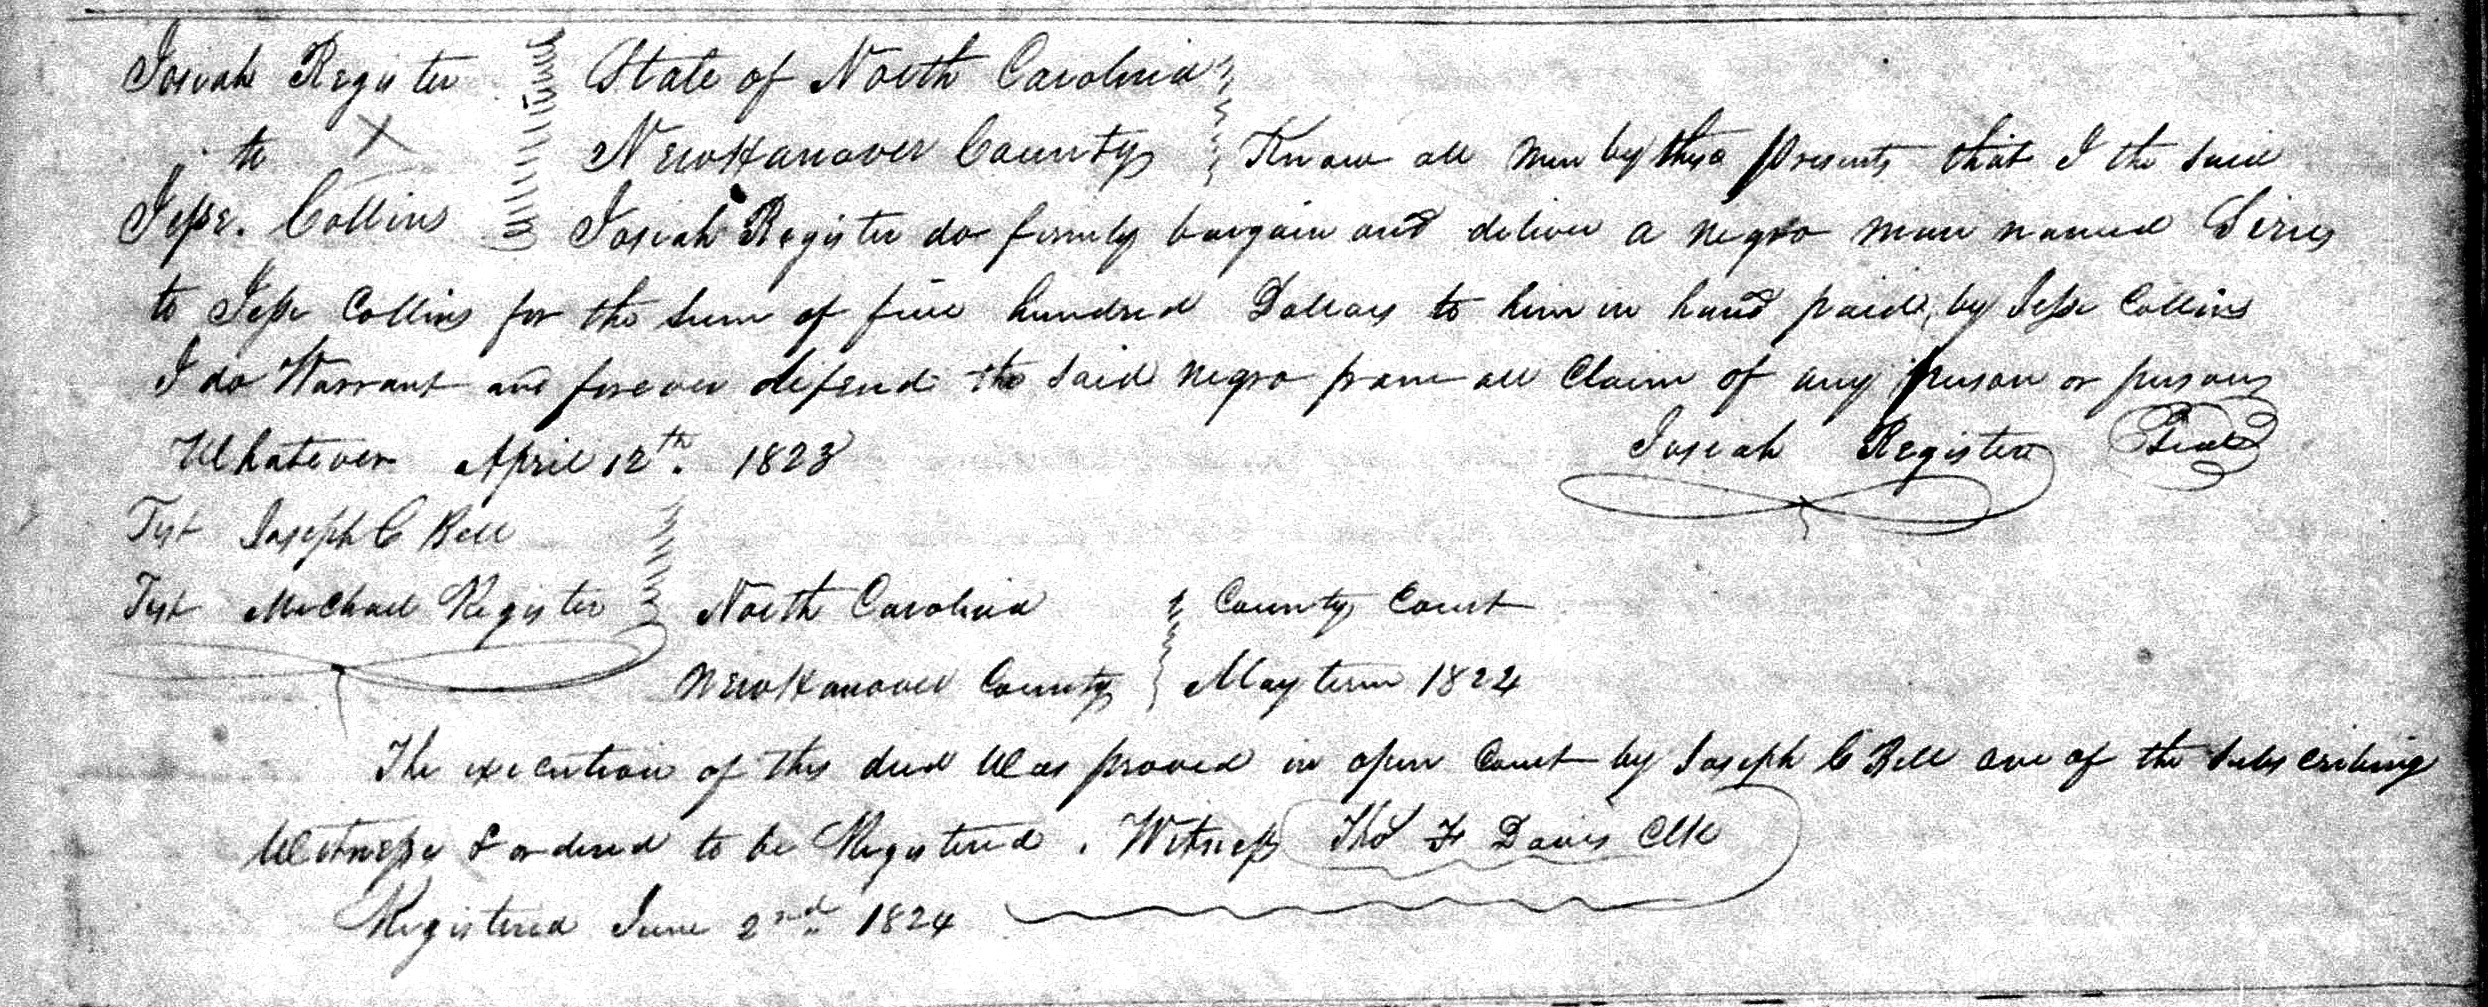 Josiah Register
to
Jesse. Collins
State of North Carolina
New Hanover County Know all men by these presents that I the said
Josiah Register do firmly bargain and deliver a negro man named
to Jesse Collins for the sum of five hundred Dollars to him in hand paid, by Jesse Collins
I do Warrant and forever defend the said negro from all Claim of any person or persons
Whatever April 12th. 1823
Josiah Register Seal
Test Joseph C Bell
Test Michael Register
North Carolina County Court
New Hanover County May term 1824
The execution of this deed Was proved in open Court by Joseph C Bell one of the subscribing
Witnesses & ordered to be Registered. Witness Thos F Davis Clk
Registered June 2nd 1824